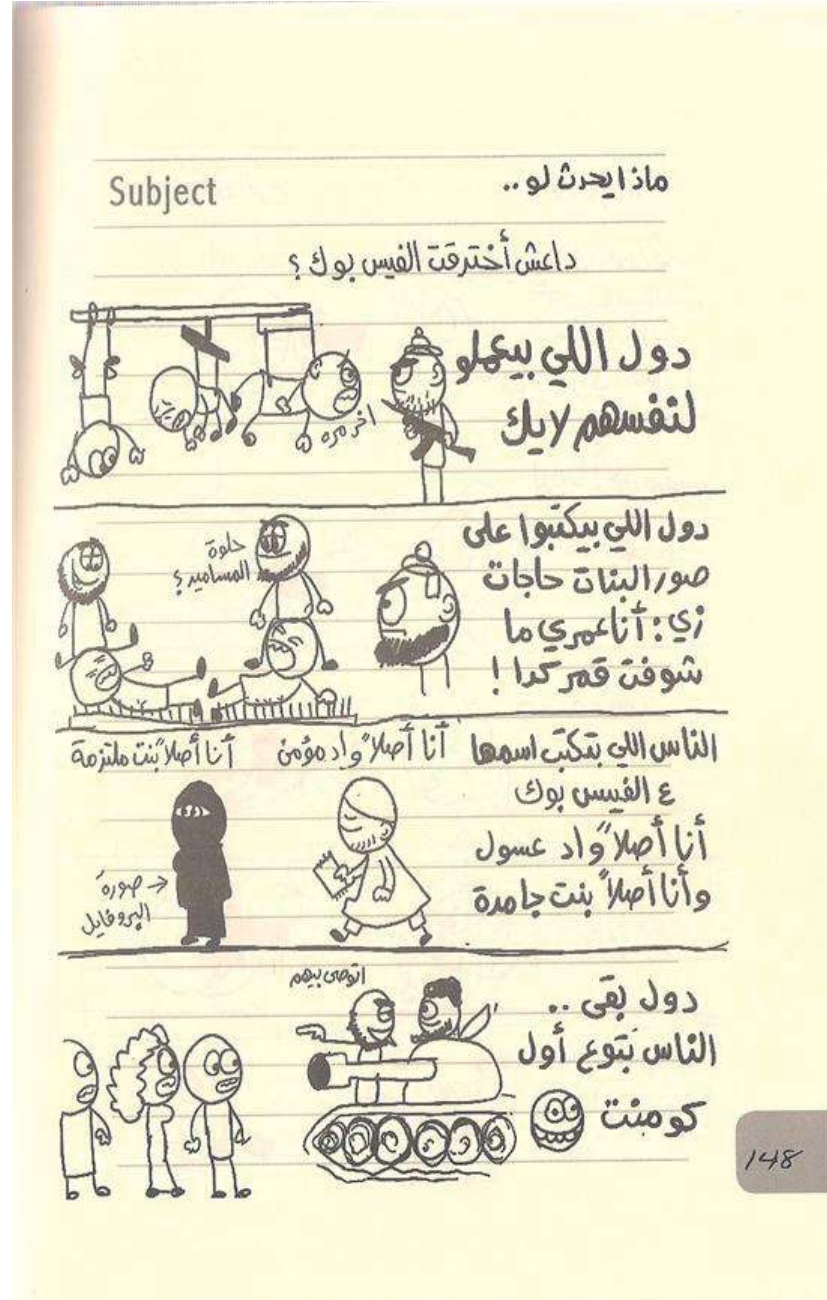 Subject
ماذا يحدث لو ..
داعش أخترقت الفيس بوك ؟
دول اللي بيعملو
لنفسهم لايك
اخر مره
دول اللي بيكتبوا على
صور البنات حاجات
زي : أنا عمري ما
شوفت قمر كدا !
حلوة
المسامير ؟
الناس اللي بتكتب اسمها
ع الفيس بوك
أنا أصلاً واد عسول
وأنا أصلاً بنت جامدة
أنا أصلاً واد مؤمن
أنا أصلاً بنت ملتزمة
صورة
البروفايل
دول بقى ..
الناس بتوع أول
كومنت
اتوصى بيهم
148